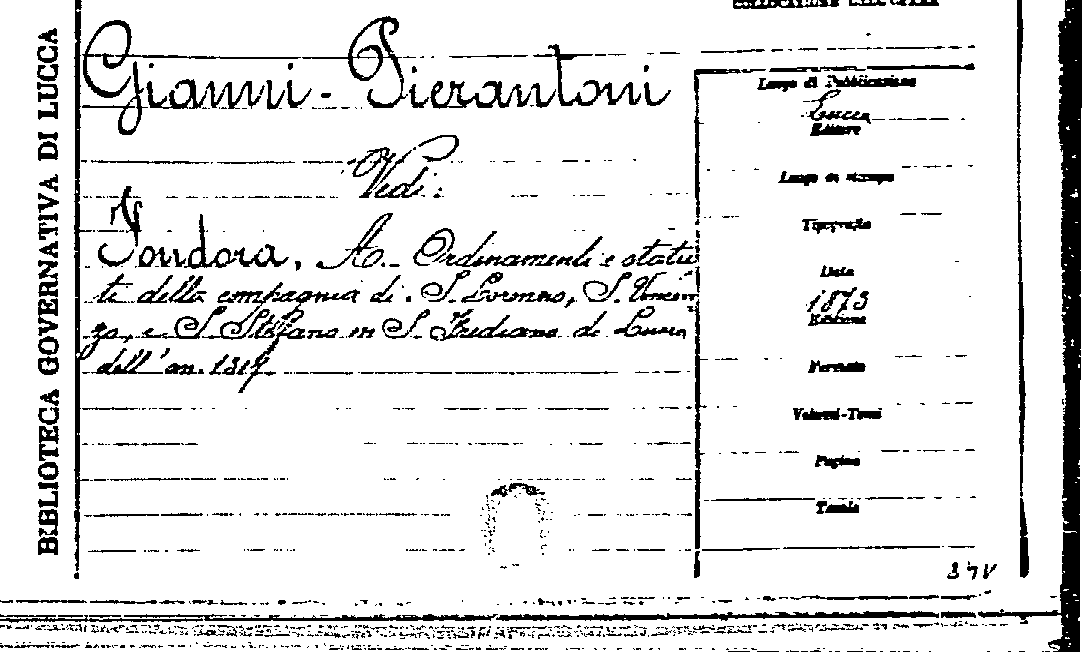 COLLOCAZIONE DELL'OPERA
BIBLIOTECA GOVERNATIVA DI LUCCA
Gianni - Pierantoni
Vedi:
Fondora, A. - Ordinamenti e statu
ti della compagnia di S. Lorenzo, S. Vincen
zo, e S. Stefano in S. Frediano di Lucca
dell'an.
Luogo di Pubblicazione
Lucca
Editore
Luogo di stampa
Tipografia
Data
1873
Edizione
Formato
Volumi-Tomi
Pagine
Tavole